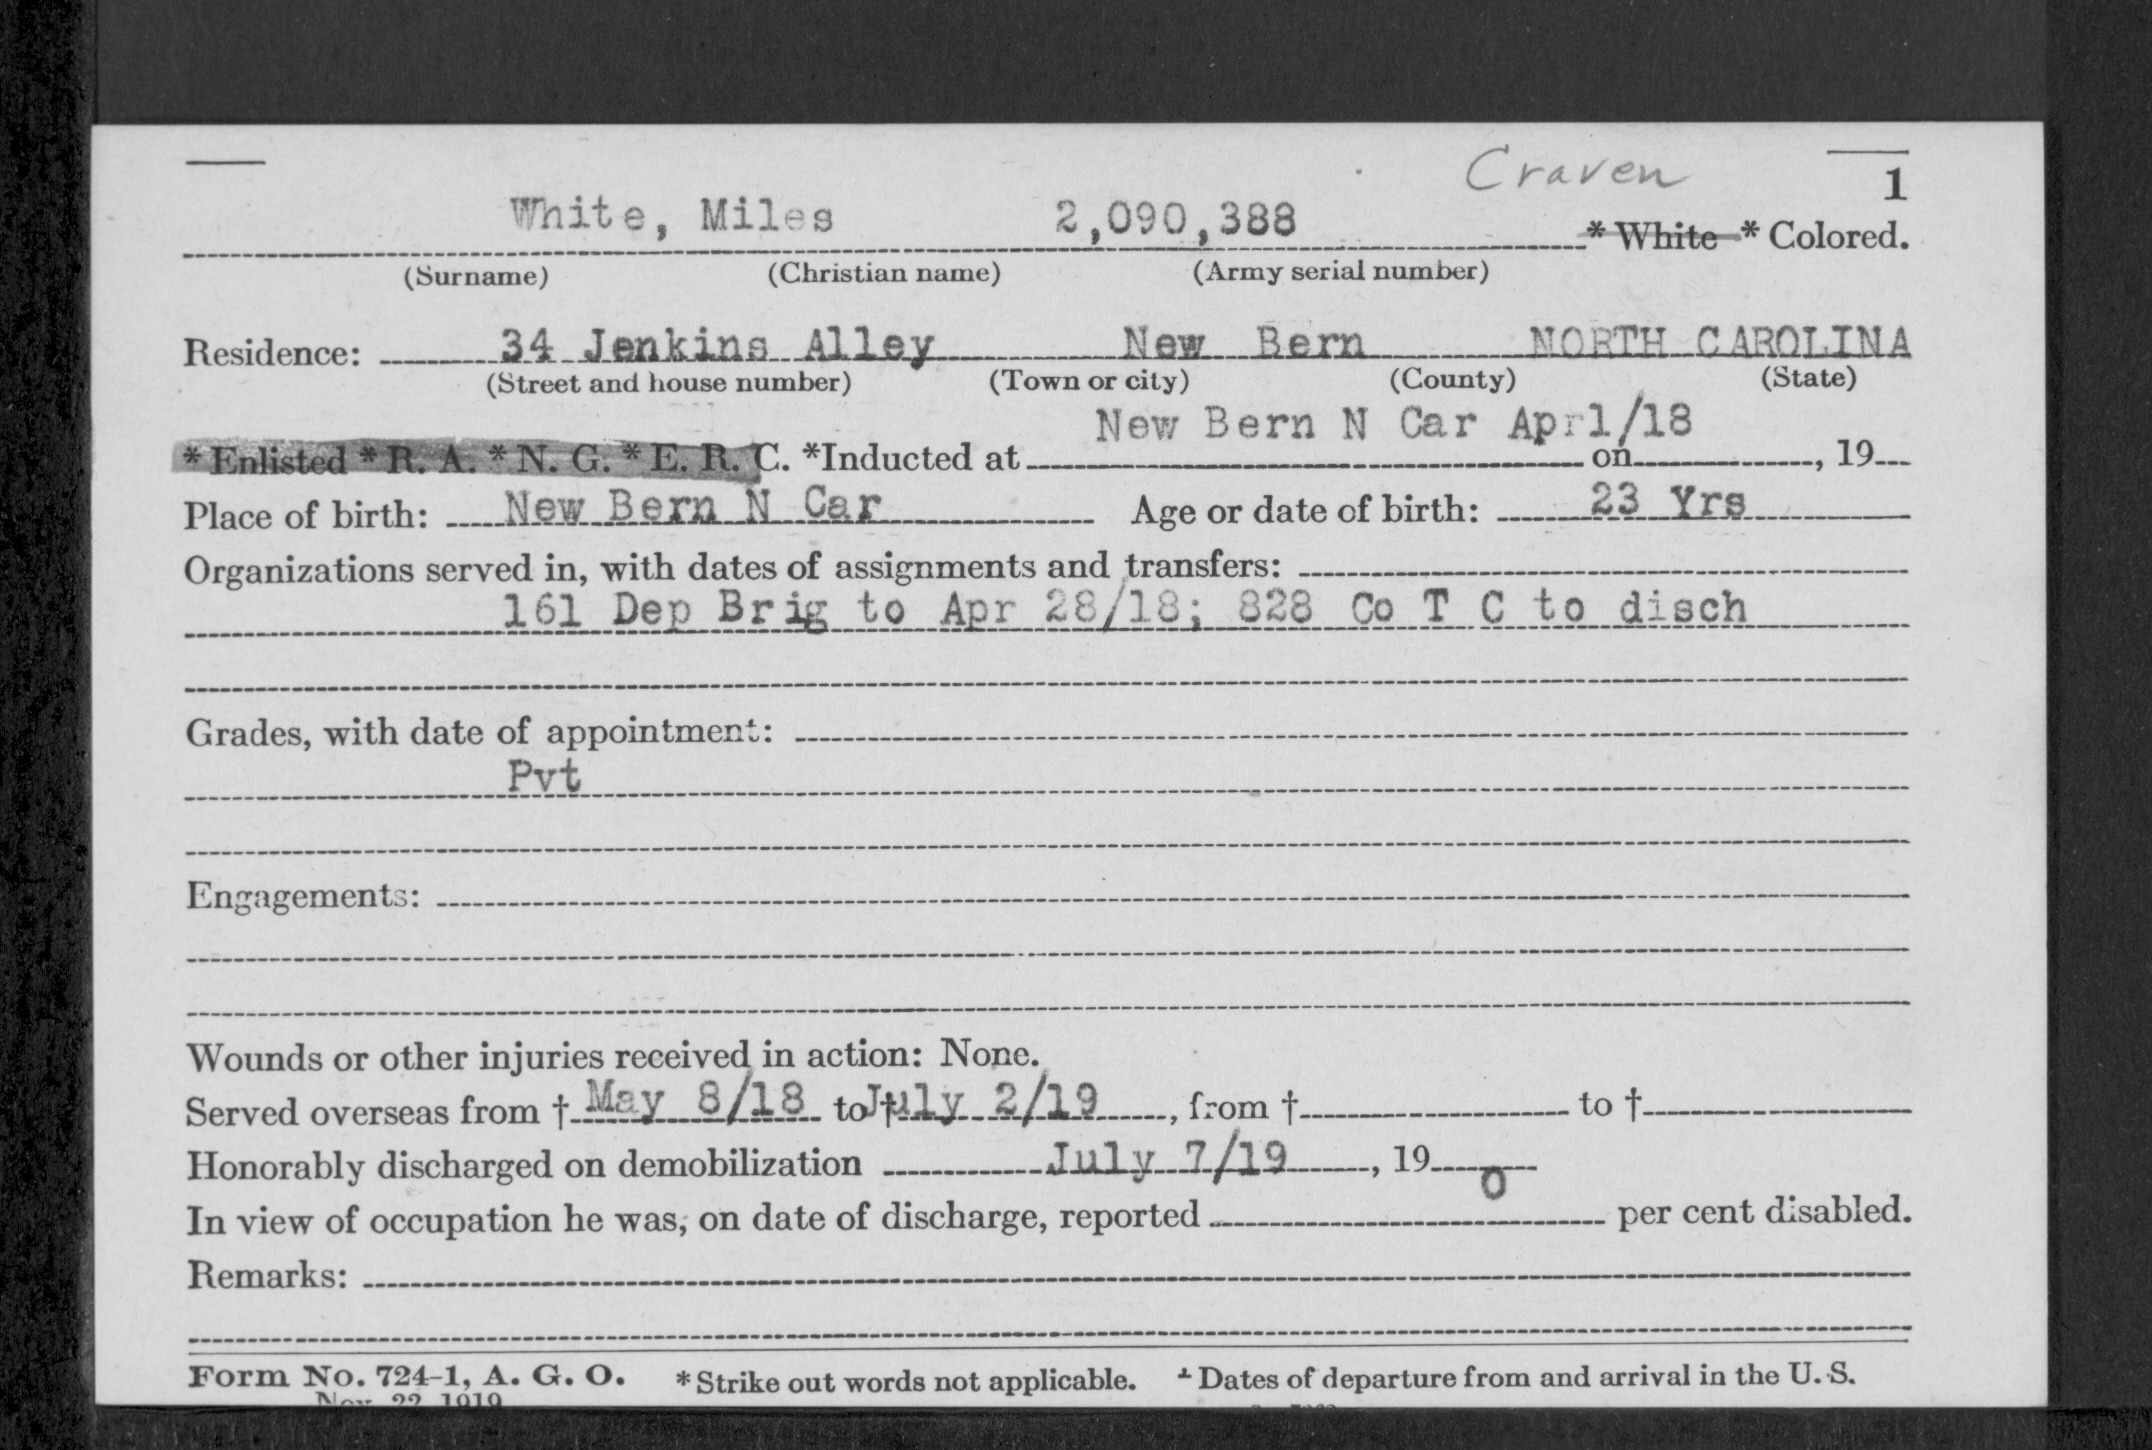 Craven
1
White, Miles 2,090,388 * White * Colored.
(Surname) (Christian name) (Army serial number)
Residence: 34 Jenkins Alley New Bern NORTH CAROLINA
(Street and house number) (Town or city) (County) (State)
New Bern N Car Apr1/18
* Enlisted * R. A. * N. G. * E. R. C. *Inducted at on , 19
Place of birth: New Bern N Car Age or date of birth: 23 Yrs
Organizations served in, with dates of assignments and transfers:
161 Dep Brig to Apr 28/18; 828 Co T C to disch
Grades, with date of appointment:
Pvt
Engagements:
Wounds or other injuries received in action: None.
Served overseas from † May 8/18 to † July 2/19 , from † to †
Honorably discharged on demobilization July 7/19 , 19
In view of occupation he was, on date of discharge, reported 0 per cent disabled.
Remarks:
Form No. 724-1, A. G. O. * Strike out words not applicable. † Dates of departure from and arrival in the U. S.
Nov. 22, 1919